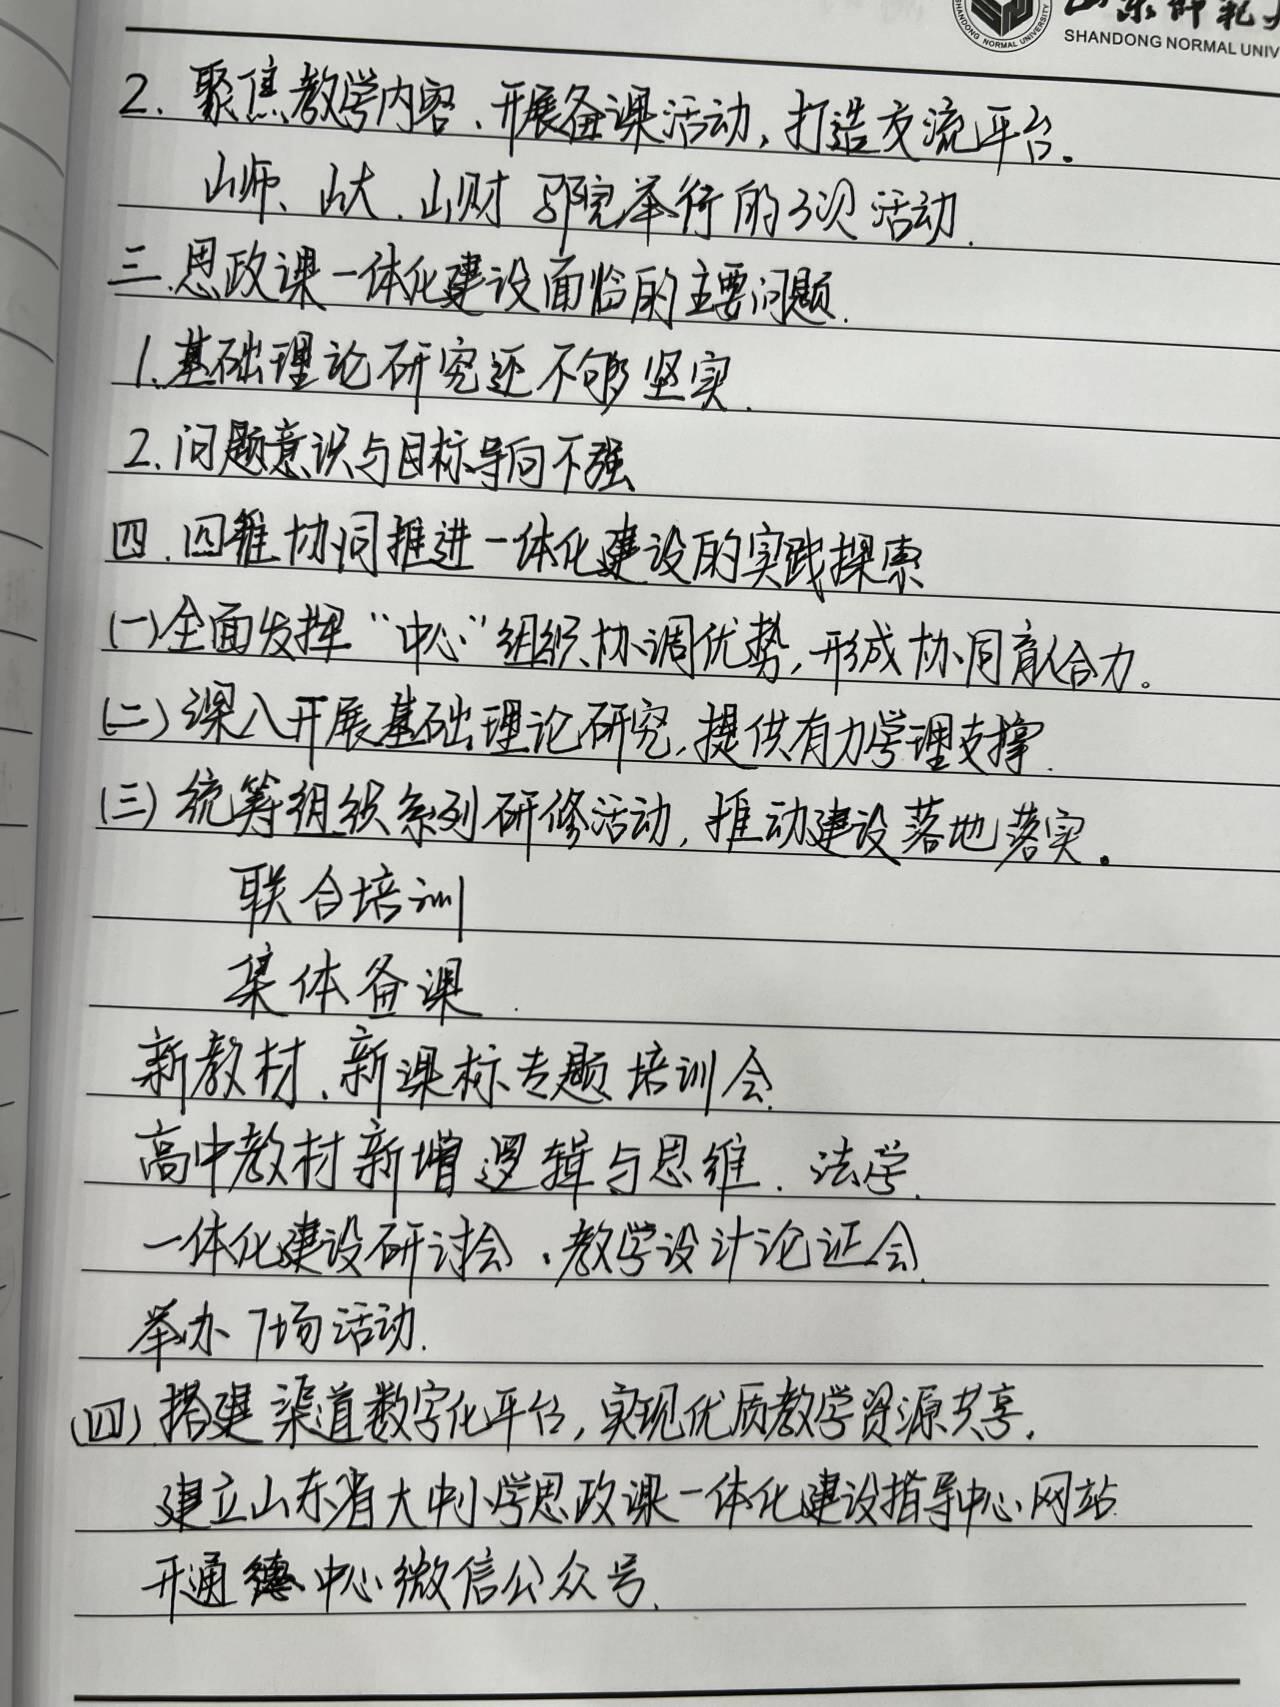 山东师范大
SHANDONG NORMAL UNIV
SHANDONG NORMAL UNIVERSITY
2. 聚焦教学内容、开展备课活动,打造交流平台。
山师、山大、山财 举行的3次活动.
三.思政课一体化建设面临的主要问题.
1.基础理论研究还不够坚实.
2.问题意识与目标导向不强
四.四维协同推进一体化建设的实践探索
(一)全面发挥“中心”组织协调优势,形成协同育人合力。
(二)深入开展基础理论研究,提供有力学理支撑.
(三)统筹组织系列研修活动,推动建设落地落实。
联合培训
集体备课.
新教材、新课标专题培训会.
高中教材新增逻辑与思维.法学.
一体化建设研讨会、教学设计论证会.
举办7场活动.
(四)搭建渠道数字化平台,实现优质教学资源共享.
建立山东省大中小学思政课一体化建设指导中心网站
开通 中心微信公众号.